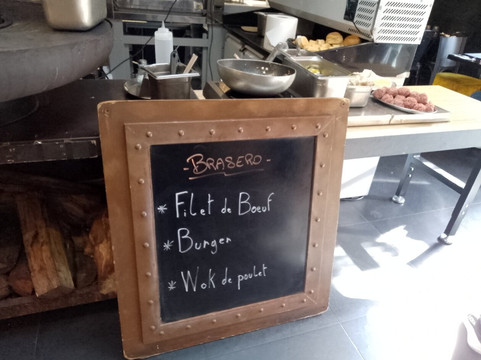 - BRASERO -
* Filet de Boeuf
* Burger
* Wok de poulet